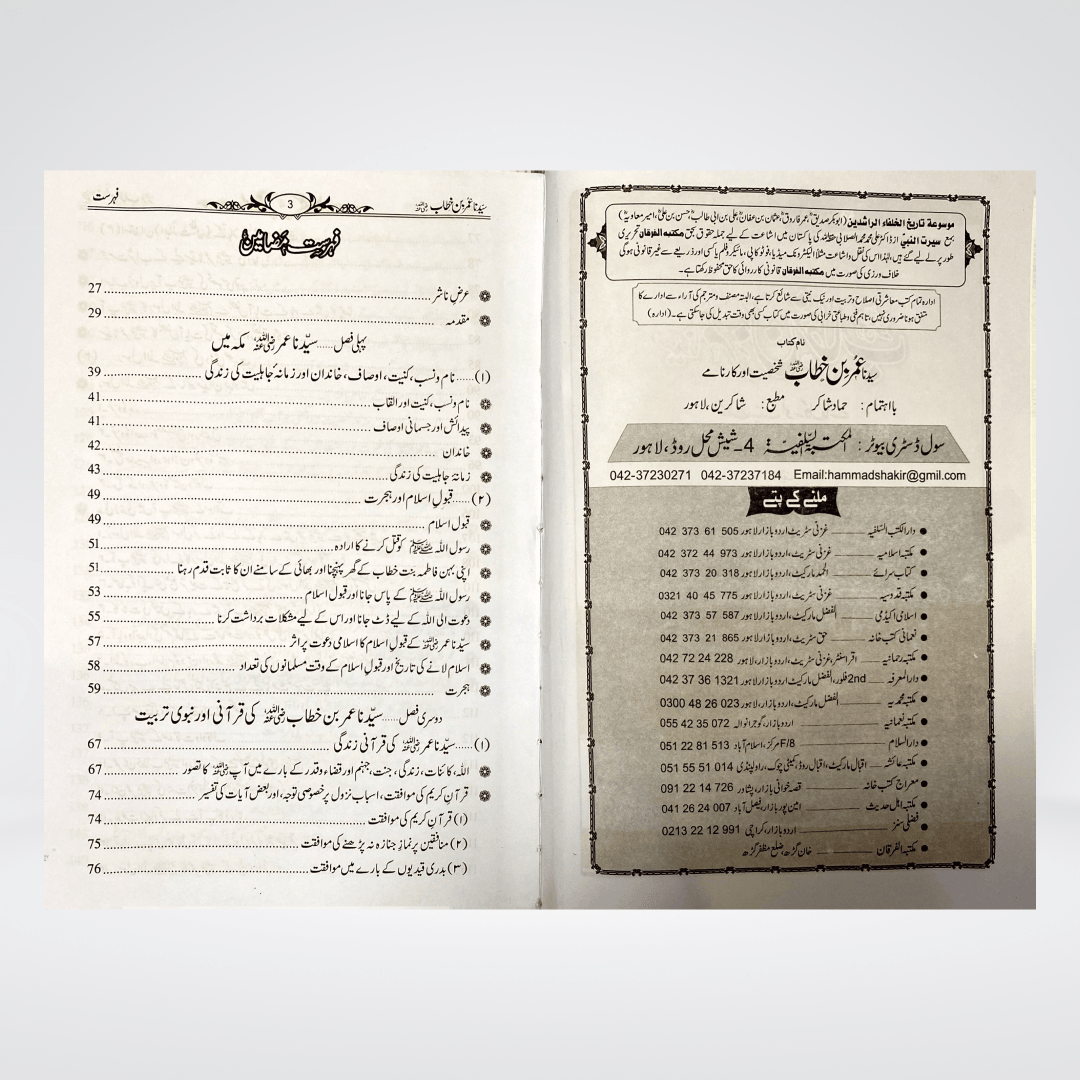 موسوعة تاريخ الخلفاء الراشدين (ابوبکر صدیق، عمر فاروق، عثمان بن عفان، علی بن ابی طالب، حسن بن علی، امیر معاویہ)
بمع سیرت النبیؐ از ڈاکٹر علی محمد محمد الصلابی حفظہ اللہ کی پاکستان میں اشاعت کے لیے جملہ حقوق بحق مکتبہ الفرقان تحریری
طور پر لے لیے گئے ہیں، لہٰذا اس کی نقل و اشاعت مثلاً الیکٹرونک میڈیا، فوٹو کاپی، مائیکرو فلم یا کسی اور ذریعے سے غیر قانونی ہوگی
خلاف ورزی کی صورت میں مکتبہ الفرقان قانونی کارروائی کا حق محفوظ رکھتا ہے۔
ادارہ تمام کتب معاشرتی اصلاح و تربیت اور نیک نیتی سے شائع کرتا ہے، البتہ مصنف و مترجم کی آراء سے ادارے کا
متفق ہونا ضروری نہیں، تاہم فنی و طباعتی خرابی کی صورت میں کتاب کسی بھی وقت تبدیل کی جاسکتی ہے۔ (ادارہ)
نام کتاب
سیدنا عمر بن خطاب رضی اللہ عنہ شخصیت اور کارنامے
بااہتمام: حماد شاکر مطبع: شاکرین، لاہور
سول ڈسٹری بیوٹر: المکتبۃ السلفیۃ 4-شیش محل روڈ، لاہور
042-37230271 042-37237184 Email:hammadshakir@gmil.com
ملنے کے پتے
● دارالکتب السلفیہ غزنی سٹریٹ اردو بازار لاہور 042 373 61 505
● مکتبہ اسلامیہ غزنی سٹریٹ، اردو بازار لاہور 042 372 44 973
● کتاب سرائے الحمد مارکیٹ، اردو بازار لاہور 042 373 20 318
● مکتبہ قدوسیہ غزنی سٹریٹ، اردو بازار لاہور 0321 40 45 775
● اسلامی اکیڈمی الفضل مارکیٹ اردو بازار لاہور 042 373 57 587
● نعمانی کتب خانہ حق سٹریٹ، اردو بازار لاہور 042 373 21 865
● مکتبہ رحمانیہ اقرا سنٹر، غزنی سٹریٹ، اردو بازار، لاہور 042 72 24 228
● دارالمعرفہ 2nd فلور، الفضل مارکیٹ اردو بازار لاہور 042 37 36 1321
● مکتبہ محمدیہ الفضل مارکیٹ، اردو بازار، لاہور 0300 48 26 023
● مکتبہ نعمانیہ اردو بازار، گوجرانوالہ 055 42 35 072
● دارالسلام F/8 مرکز، اسلام آباد 051 22 81 513
● مکتبہ عائشہ اقبال مارکیٹ، اقبال روڈ، کمیٹی چوک، راولپنڈی 051 55 51 014
● معراج کتب خانہ قصہ خوانی بازار، پشاور 091 22 14 726
● مکتبہ اہل حدیث امین پور بازار، فیصل آباد 041 26 24 007
● فضلی سنز اردو بازار، کراچی 0213 22 12 991
● مکتبہ الفرقان خان گڑھ، ضلع مظفر گڑھ
سیدنا عمر بن خطاب رضی اللہ عنہ 3 فہرست
فہرست مضامین
عرض ناشر 27
مقدمہ 29
پہلی فصل ...... سیّدنا عمر رضی اللہ عنہ مکہ میں
(۱)...... نام و نسب، کنیت، اوصاف، خاندان اور زمانۂ جاہلیت کی زندگی 39
نام و نسب، کنیت اور القاب 41
پیدائش اور جسمانی اوصاف 41
خاندان 42
زمانۂ جاہلیت کی زندگی 43
(۲)...... قبولِ اسلام اور ہجرت 49
قبول اسلام 49
رسول اللہ ﷺ کو قتل کرنے کا ارادہ 51
اپنی بہن فاطمہ بنت خطاب کے گھر پہنچنا اور بھائی کے سامنے ان کا ثابت قدم رہنا 51
رسول اللہ ﷺ کے پاس جانا اور قبول اسلام 53
دعوت الی اللہ کے لیے ڈٹ جانا اور اس کے لیے مشکلات برداشت کرنا 55
سیّدنا عمر رضی اللہ عنہ کے قبولِ اسلام کا اسلامی دعوت پر اثر 57
اسلام لانے کی تاریخ اور قبولِ اسلام کے وقت مسلمانوں کی تعداد 58
ہجرت 59
دوسری فصل ...... سیّدنا عمر بن خطاب رضی اللہ عنہ کی قرآنی اور نبوی تربیت
(۱)...... سیّدنا عمر رضی اللہ عنہ کی قرآنی زندگی 67
اللہ، کائنات، زندگی، جنت، جہنم اور قضاء و قدر کے بارے میں آپ رضی اللہ عنہ کا تصور 67
قرآن کریم کی موافقت، اسباب نزول پر خصوصی توجہ، اور بعض آیات کی تفسیر 74
(۱) قرآن کریم کی موافقت 74
(۲) منافقین پر نمازِ جنازہ نہ پڑھنے کی موافقت 75
(۳) بدری قیدیوں کے بارے میں موافقت 76